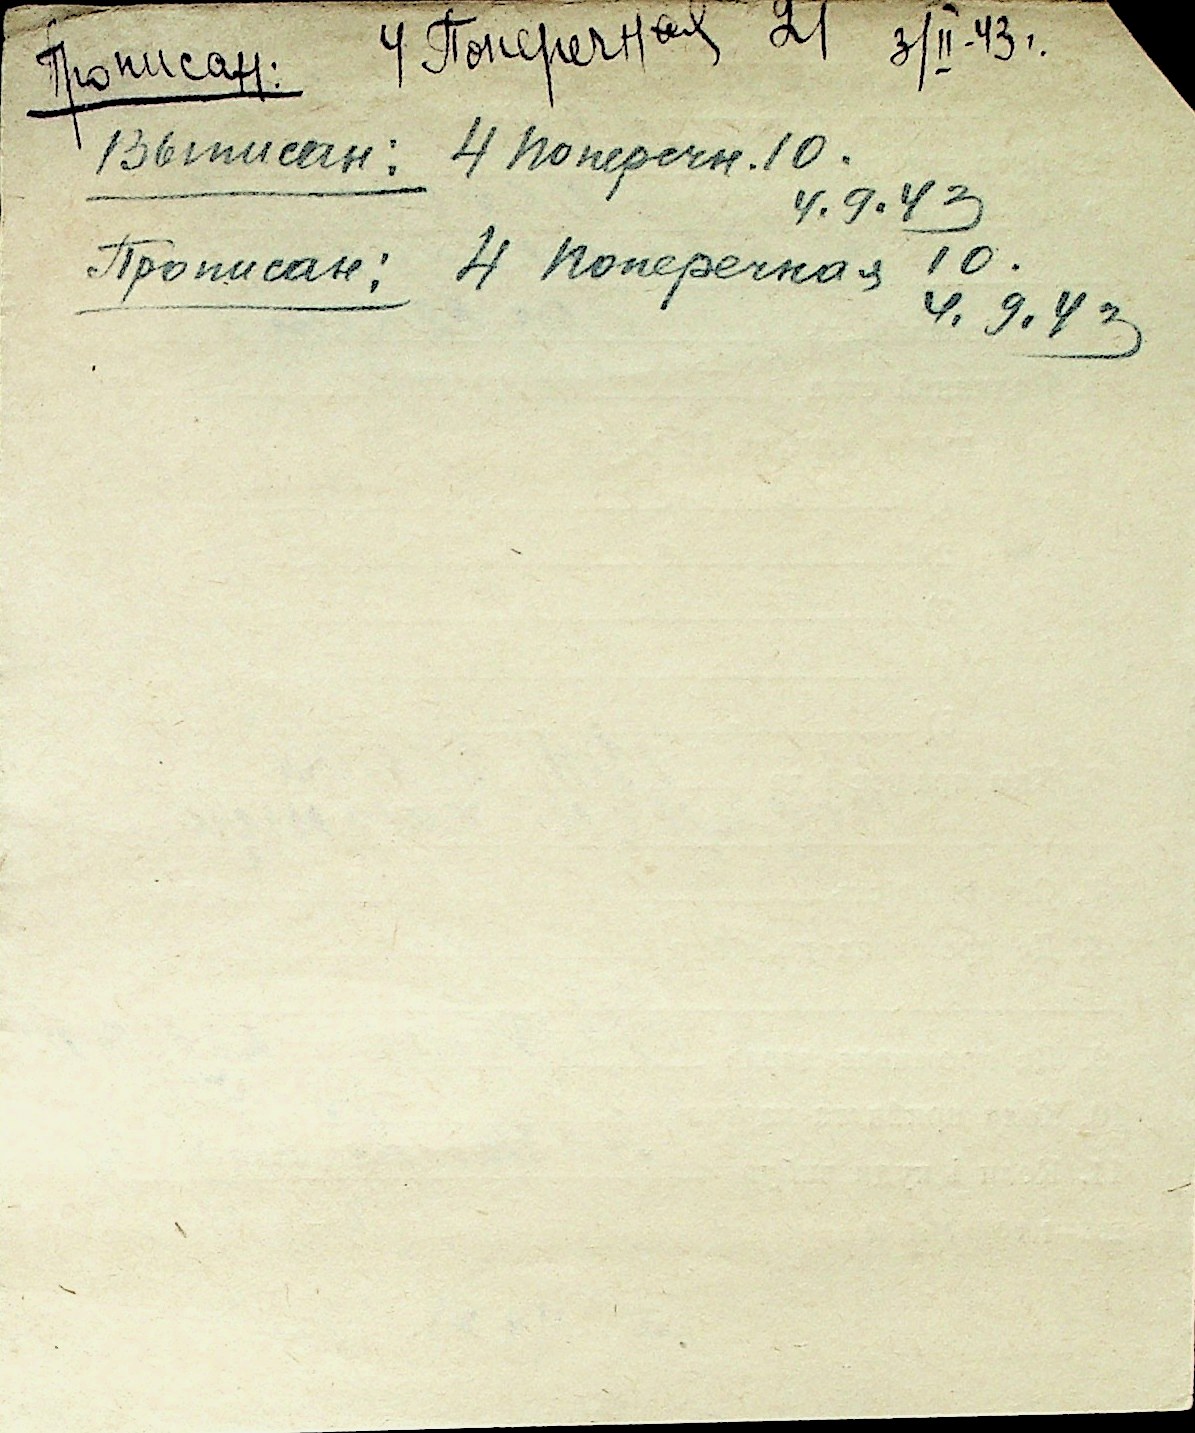 Прописан: 4 Поперечная 21 3/II-43г.
Выписан: 4 Поперечн. 10.
4.9.43
Прописан: 4 Поперечная 10.
4.9.43